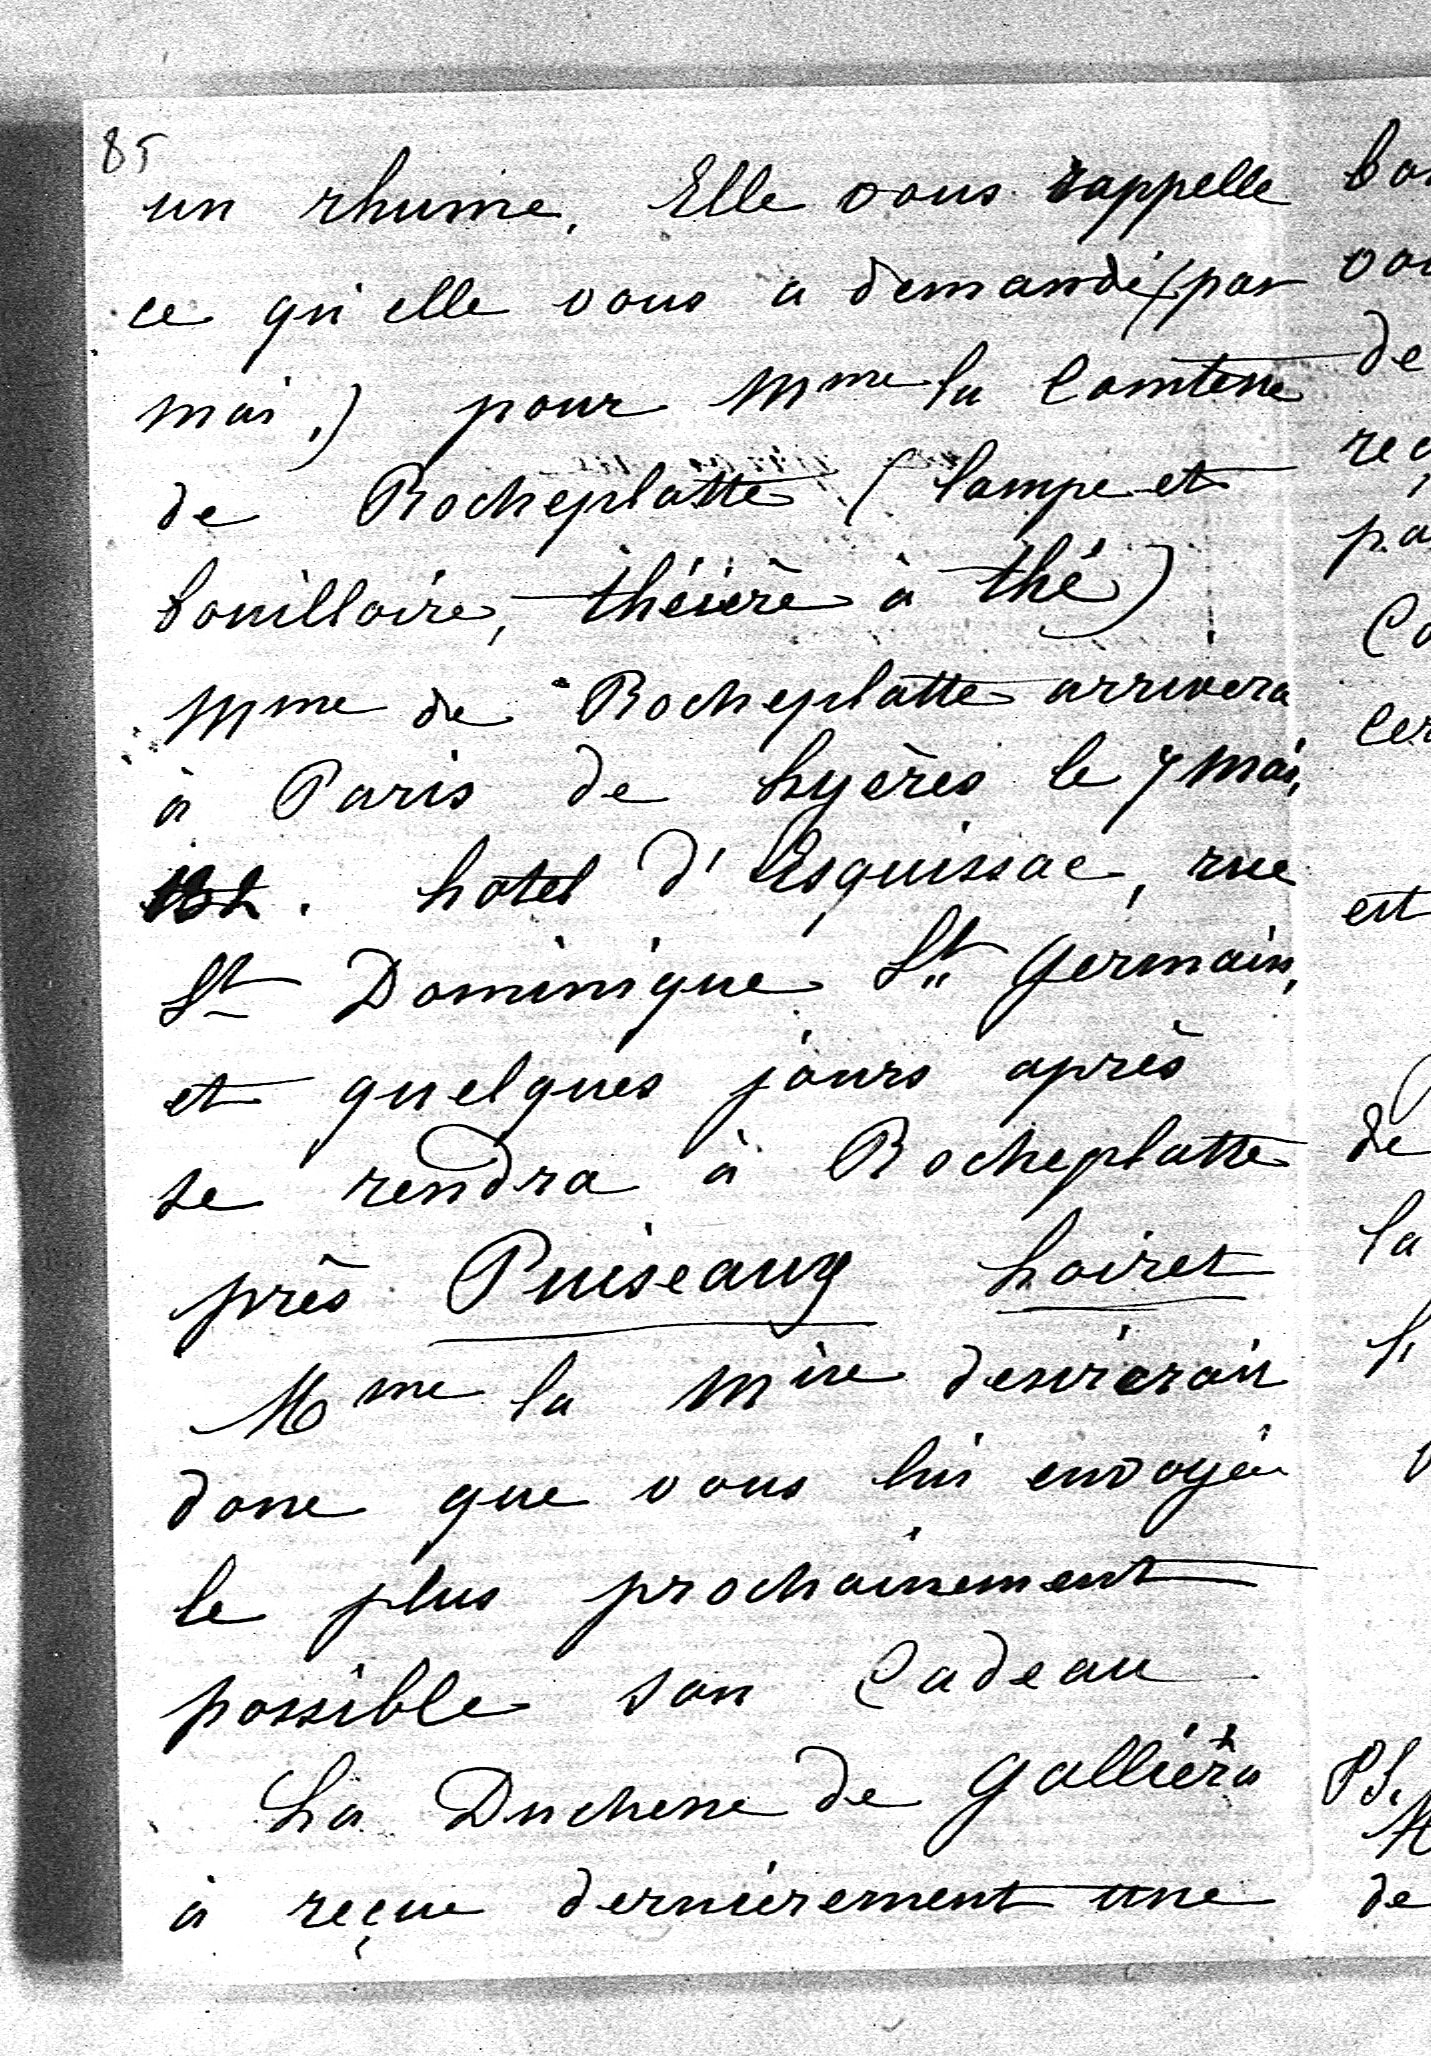 85
un rhume, Elle vous rappelle
ce qu'elle vous a demandé (par
moi,) pour Mme la Comtesse
de Rocheplatte (lampe et
bouilloire, théière à thé)
Mme de Rocheplatte arrivera
à Paris de hyères le 7 mai,
hotel d'Esquissac, rue
St Dominique St Germain,
et quelques jours après
se rendra à Rocheplatte
près Puiseaux Loiret
Mme la Mise desirerait
donc que vous lui envoyiez
le plus prochainement
possible son Cadeau
La Duchesse de Galliéra
à reçue dernièrement une
de
la
est
de
PS.
de